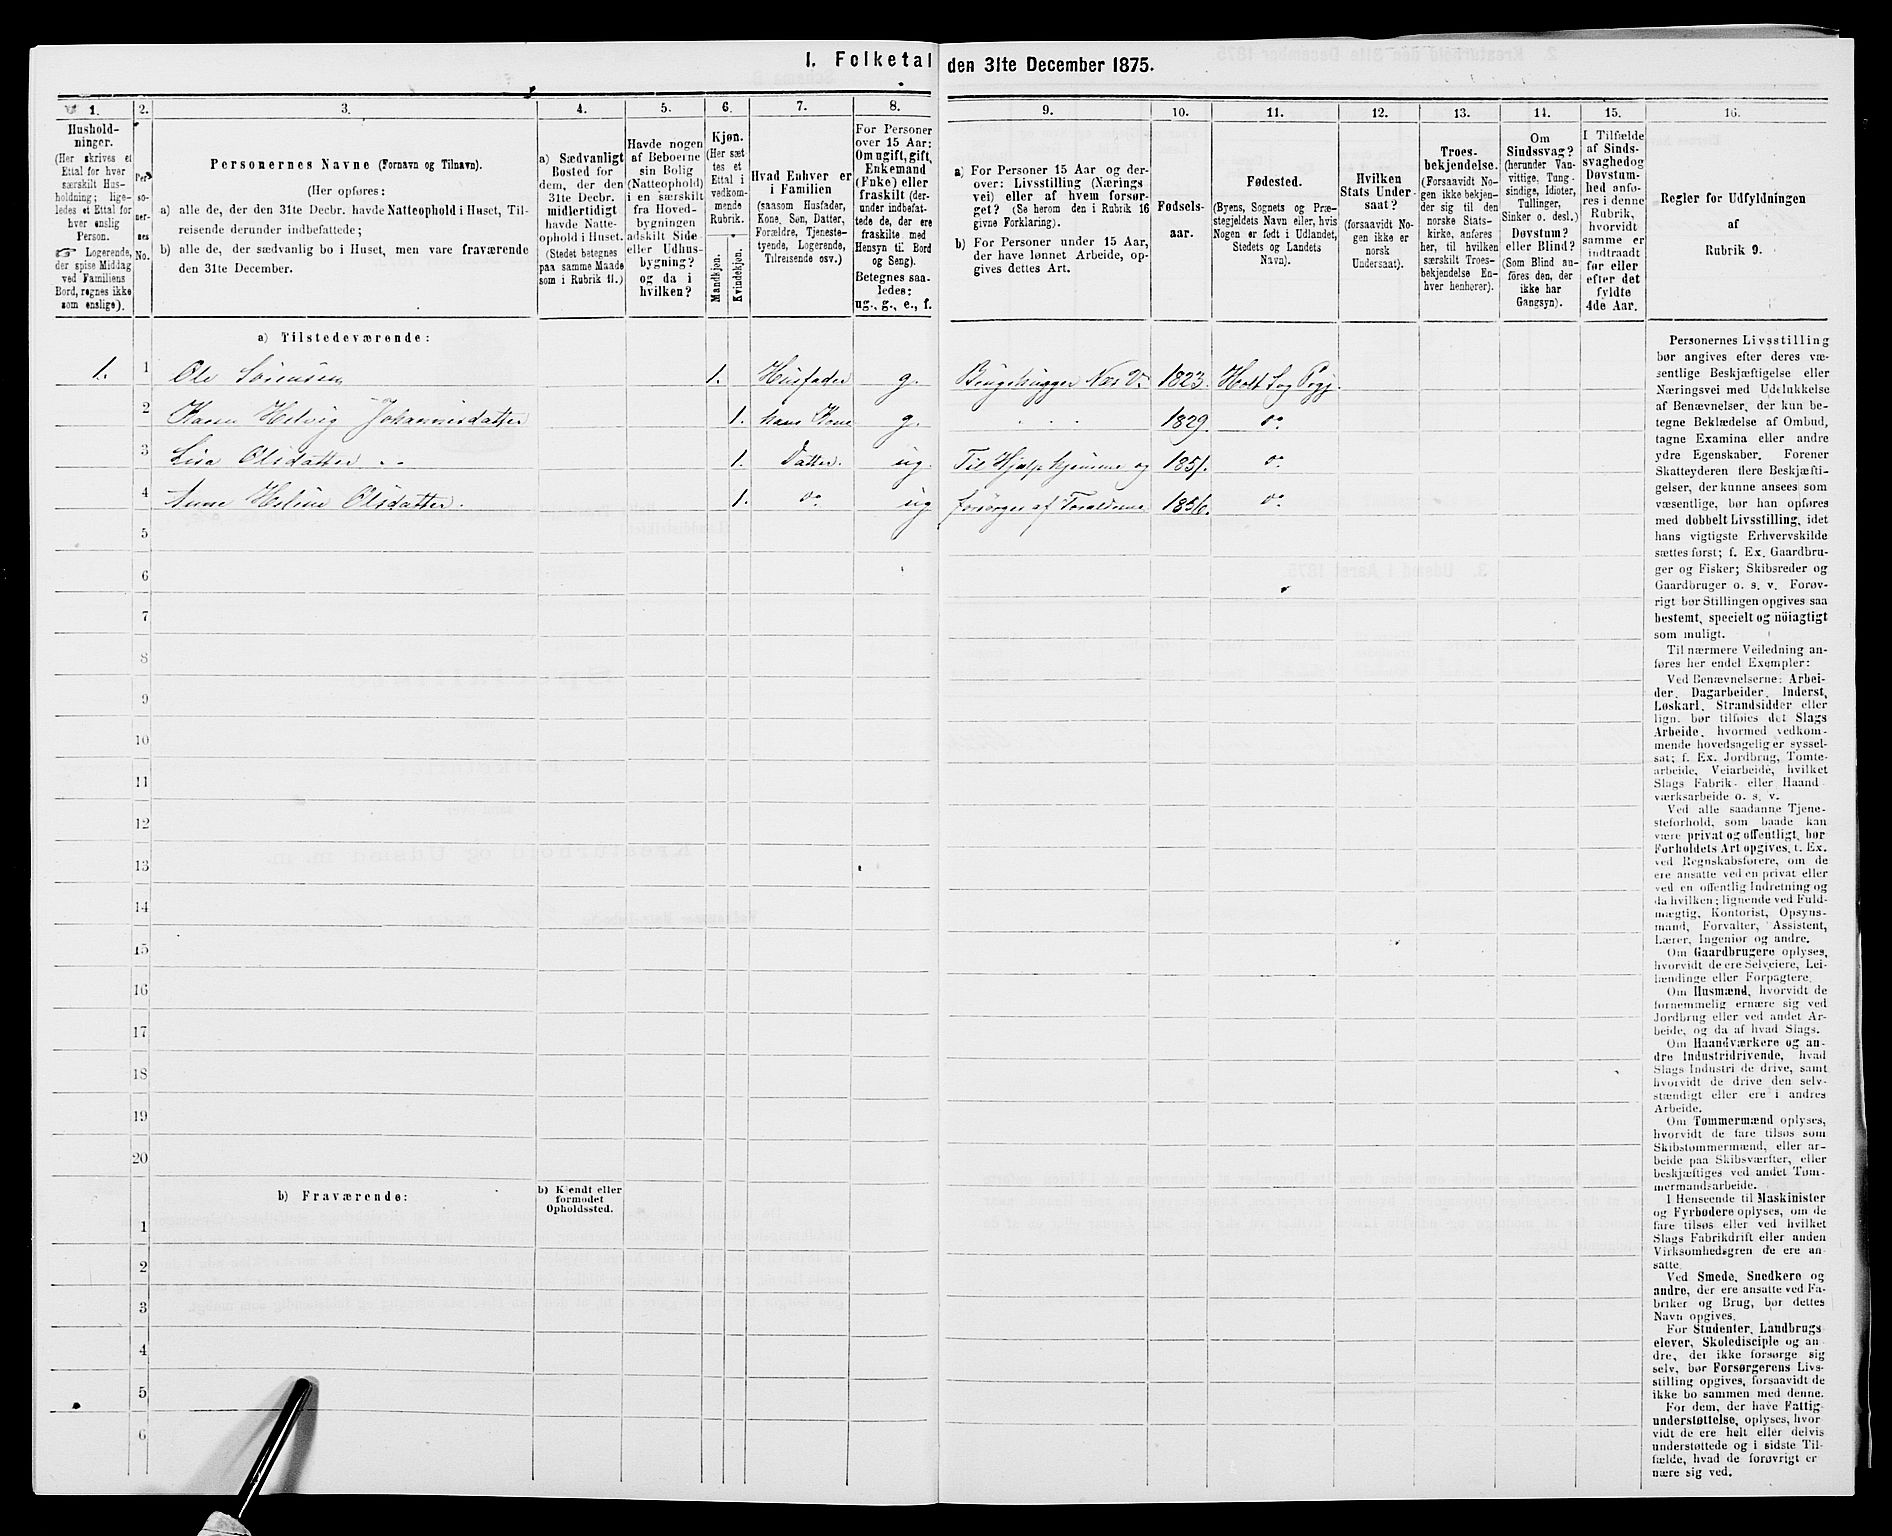 I. Folketal den 31te December 1875.
1.
Hushold-
ninger.
(Her skrives et
Ettal for hver
særskilt Hus-
holdning; lige-
ledes et Ettal for
hver enslig
Person.
☞ Logerende,
der spise Middag
ved Familiens
Bord, regnes ikke
som enslige).
2.
Per-
so-
ner-
nes
No.
3.
Personernes Navne (Fornavn og Tilnavn).
(Her opføres:
a) alle de, der den 31te Decbr. havde Natteophold i Huset, Til-
reisende derunder indbefattede;
b) alle de, der sædvanlig bo i Huset, men vare fraværende
den 31te December.
4.
a) Sædvanligt
Bosted for
dem, der den
31te Decbr.
midlertidigt
havde Natte-
ophold i Huset.
(Stedet betegnes
paa samme Maade
som i Rubrik 11.)
5.
Havde nogen
af Beboerne
sin Bolig
(Natteophold)
i en særskilt
fra Hoved-
bygningen
adskilt Side
eller Udhus-
bygning?
og da i
hvilken?
6.
Kjøn.
(Her sæt
tes et
Ettal i
vedkom-
mende
Rubrik.
Mandkjøn.
Kvindekjøn.
7.
Hvad Enhver er
i Familien
(saasom Husfader,
Kone, Søn, Datter,
Forældre, Tjeneste-
tyende, Logerende,
Tilreisende osv.)
8.
For Personer
over 15 Aar:
Om ugift, gift,
Enkemand
(Enke) eller
fraskilt (der-
under indbefat-
tede de, der ere
fraskilte med
Hensyn til Bord
og Seng).
Betegnes saa-
ledes:
ug., g., e., f.
9.
a) For Personer 15 Aar og der-
over: Livsstilling (Nærings
vei) eller af hvem forsør-
get? (Se herom den i Rubrik 16
givne Forklaring).
b) For Personer under 15 Aar,
der have lønnet Arbeide, op-
gives dettes Art.
10.
Fødsels-
aar.
11.
Fødested.
(Byens, Sognets og Præ-
stegjeldets Navn eller, hvis
Nogen er født i Udlandet,
Stedets og Landets
Navn).
12.
Hvilken
Stats Under-
saat?
(forsaavidt No-
gen ikke er
norsk
Undersaat).
13.
Troes-
bekjendelse.
(Forsaavidt No-
gen ikke bekjen-
der sig til den
norske Stats-
kirke, anføres
her, til hvilken
særskilt Troes-
bekjendelse En-
hver henhører).
14.
Om
Sindssvag?
(herunder Van-
vittige, Tung-
sindige, Idioter,
Tullinger,
Sinker o. desl.)
Døvstum?
eller Blind?
(Som Blind an-
føres den, der
ikke har
Gangsyn).
15.
I Tilfælde
af Sinds-
svaghed og
Døvstum-
hed anfø-
res i denne
Rubrik,
hvorvidt
samme er
indtraadt
før eller
efter det
fyldte
4de Aar.
16.
Regler for Udfyldningen
af
Rubrik 9.
a) Tilstedeværende:
1. 1 Ole Sørensen 1. Husfader g. 1823. Holt Sog Prgj.
2 Karen Helvig Johannesdatter 1. hans Kone g. 1829. do
3 Lisa Olsdatter 1. Datter. ug. Til Hjælp hjemme og 1851. do
4 Anne Helene Olsdatter. 1. do ug forsørges af Forældrene 1856. do
5
6
7
8
9
10
11
12
13
14
15
16
17
18
19
20
b) Fraværende:
b) Kjendt eller
formodet
Opholdssted.
1
2
3
4
5
6
Personernes Livsstilling
bør angives efter deres væ-
sentlige Beskjæftigelse eller
Næringsvei med Udelukkelse
af Benævnelser, der kun be-
tegne Beklædelse af Ombud,
tagne Examina eller andre
ydre Egenskaber. Forener
Skatteyderen flere Beskjæfti-
gelser, der kunne ansees som
væsentlige, bør han opføres
med dobbelt Livsstilling, idet
hans vigtigste Erhvervskilde
sættes først; f. Ex. Gaardbru-
ger og Fisker; Skibsreder og
Gaardbruger o. s. v. Forøv-
rigt bør Stillingen opgives saa
bestemt, specielt og nöiagtigt
som muligt.
Til nærmere Veiledning an-
føres her endel Exempler:
Ved Benævnelserne: Arbei-
der, Dagarbeider, Inderst,
Løskarl, Strandsidder eller
lign. bør tilføies det Slags
Arbeide, hvormed vedkom-
mende hovedsagelig er syssel-
sat; f. Ex. Jordbrug, Tomte-
arbeide, Veiarbeide, hvilket
Slags Fabrik- eller Haand-
værksarbeide o. s. v.
Ved alle saadanne Tjene-
steforhold, som baade kan
være privat og offentligt, bør
Forholdets Art opgives, f. Ex.
ved Regnskabsførere, om de
ere ansatte ved en privat eller
ved en offentlig Indretning og
da hvilken; lignende ved Fuld-
mægtig, Kontorist, Opsyns-
mand, Forvalter, Assistent,
Lærer, Ingeniør og andre.
Om Gaardbrugere oplyses,
hvorvidt de ere Selveiere, Lei-
lændinge eller Forpagtere.
Om Husmænd, hvorvidt de
fornemmelig ernære sig ved
Jordbrug eller ved andet Ar-
beide, og da af hvad Slags.
Om Haandværkere og an-
dre Industridrivende, hvad
Slags Industri de drive, samt
hvorvidt de drive den selv-
stændigt eller ere i andres
Arbeide.
Om Tømmermænd oplyses,
hvorvidt de fare tilsøs som
Skibstømmermænd, eller ar-
beide paa Skibsværfter, eller
beskjæftiges ved andet Tøm-
mermandsarbeide.
I Henseende til Maskinister
og Fyrbødere oplyses, om de
fare tilsøs eller ved hvilket
Slags Fabrikdrift eller anden
Virksomhedsgren de ere an-
satte.
Ved Smede, Snedkere og
andre, der ere ansatte ved Fa-
briker og Brug, bør dettes
Navn opgives.
For Studenter, Landbrugs
elever, Skoledisciple og an
dre, der ikke forsørge sig
selv, bør Forsørgerens Livs-
stilling opgives, forsaavidt de
ikke bo sammen med denne.
For dem, der have Fattig-
understøttelse, oplyses, hvor
vidt de ere helt eller delvis
understøttede og i sidste Til-
fælde, hvad de forøvrigt er
nære sig ved.